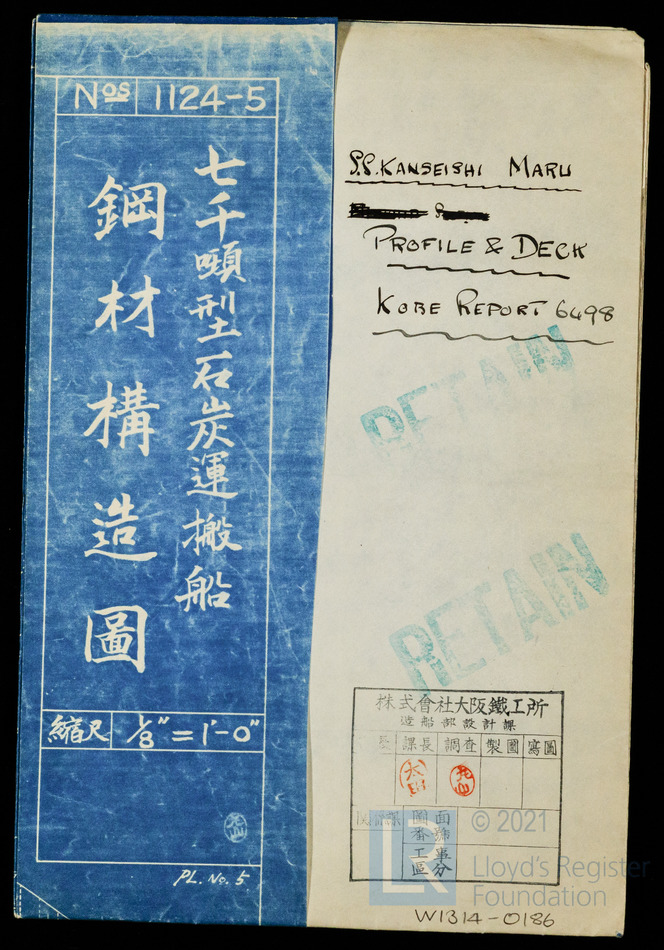 Nos 1124-5
七千噸型石炭運搬船
鋼材構造圖
縮尺 1/8" = 1'-0"
PL. No. 5
S.S. KANSEISHI MARU
PROFILE & DECK
KOBE REPORT 6498
RETAIN
RETAIN
株式會社大阪鐵工所
造船部設計課
課長 調査 製圖 寫圖
圖面番號
工事區分
© 2021
Lloyd's Register
Foundation
W1314-0186